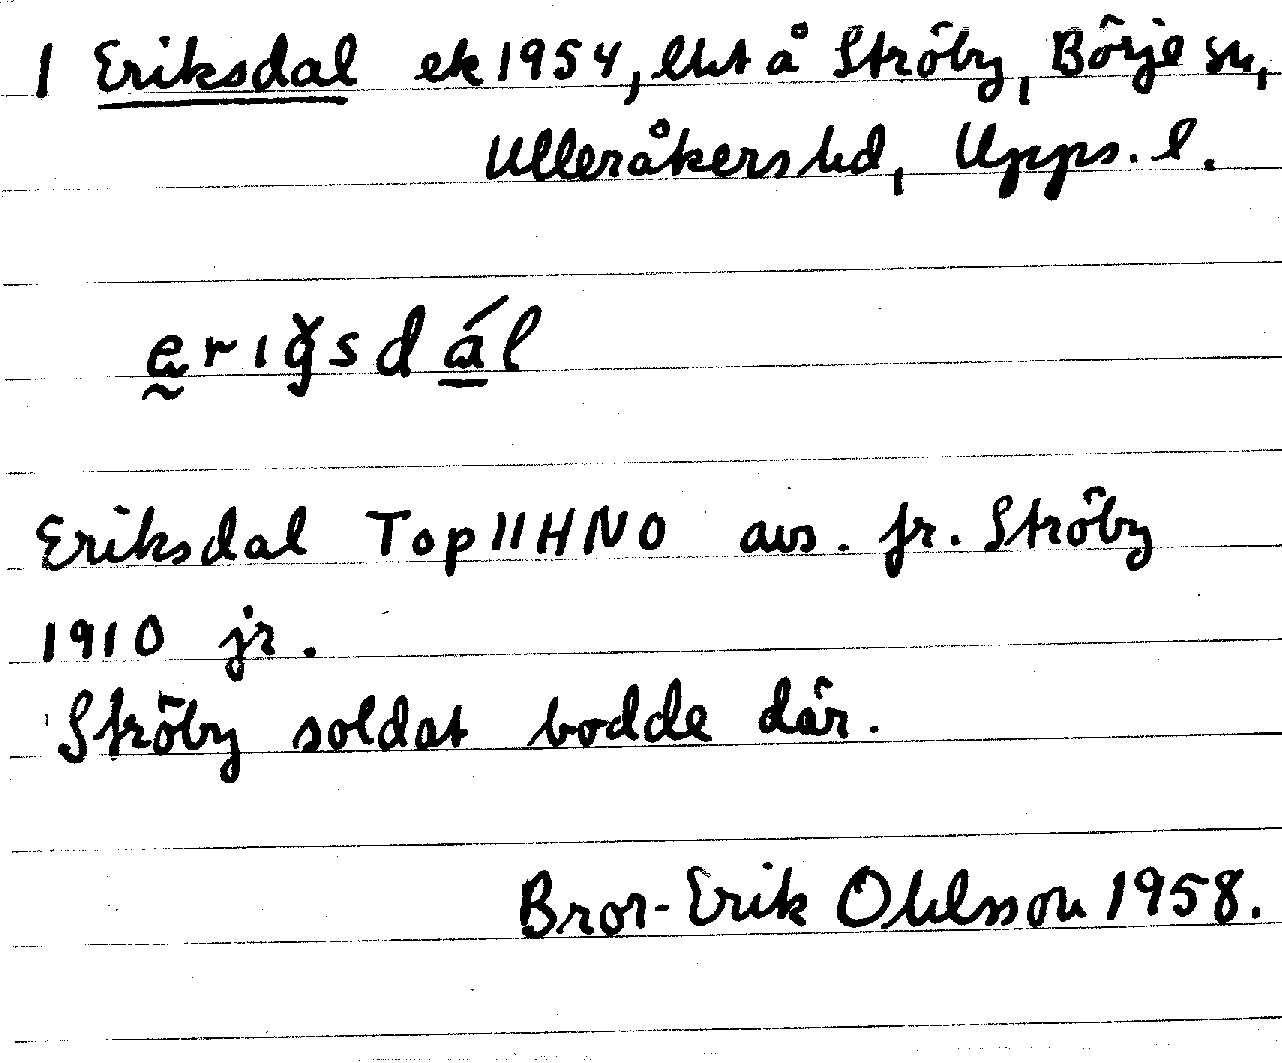 1 Eriksdal ek 1954, lht å Ströby, Börje sn,
Ulleråkers hd, Upps. l.
erığsdál
Eriksdal Top 11HNO avs. fr. Ströby
1910 jr.
Ströby soldat bodde där.
Bror-Erik Ohlsson 1958.